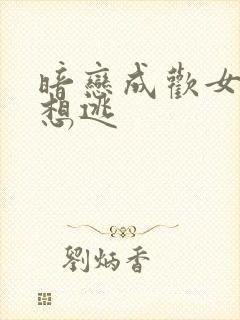 暗戀成歡女
想逃
劉炳香